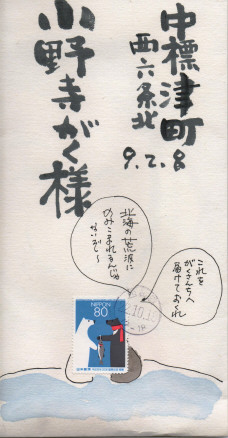 中標津町
西六条北
9.2.8
小野寺がく様
これを
がくさんちへ
届けておくれ
北海の荒波に
のみこまれるんじゃ
ないぞ〜
NIPPON
80